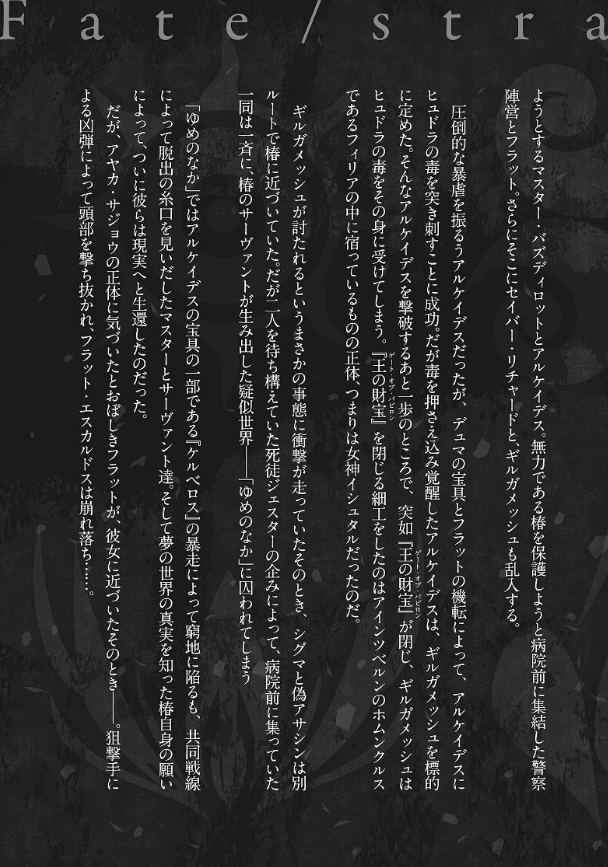 Fate/stra
ようとするマスター・バズディロットとアルケイデス。無力である椿を保護しようと病院前に集結した警察
陣営とフラット。さらにそこにセイバー・リチャードと、ギルガメッシュも乱入する。
圧倒的な暴虐を振るうアルケイデスだったが、デュマの宝具とフラットの機転によって、アルケイデスに
ヒュドラの毒を突き刺すことに成功。だが毒を押さえ込み覚醒したアルケイデスは、ギルガメッシュを標的
に定めた。そんなアルケイデスを撃破するあと一歩のところで、突如『王の財宝』が閉じ、ギルガメッシュは
ゲート・オブ・バビロン
ヒュドラの毒をその身に受けてしまう。『王の財宝』を閉じる細工をしたのはアインツベルンのホムンクルス
ゲート・オブ・バビロン
であるフィリアの中に宿っているものの正体、つまりは女神イシュタルだったのだ。
ギルガメッシュが討たれるというまさかの事態に衝撃が走っていたそのとき、シグマと偽アサシンは別
ルートで椿に近づいていた。だが二人を待ち構えていた死徒ジェスターの企みによって、病院前に集っていた
一同は一斉に、椿のサーヴァントが生み出した疑似世界――「ゆめのなか」に囚われてしまう
「ゆめのなか」ではアルケイデスの宝具の一部である『ケルベロス』の暴走によって窮地に陥るも、共同戦線
によって脱出の糸口を見いだしたマスターとサーヴァント達。そして夢の世界の真実を知った椿自身の願い
によって、ついに彼らは現実へと生還したのだった。
だが、アヤカ・サジョウの正体に気づいたとおぼしきフラットが、彼女に近づいたそのとき――。狙撃手に
よる凶弾によって頭部を撃ち抜かれ、フラット・エスカルドスは崩れ落ち……。